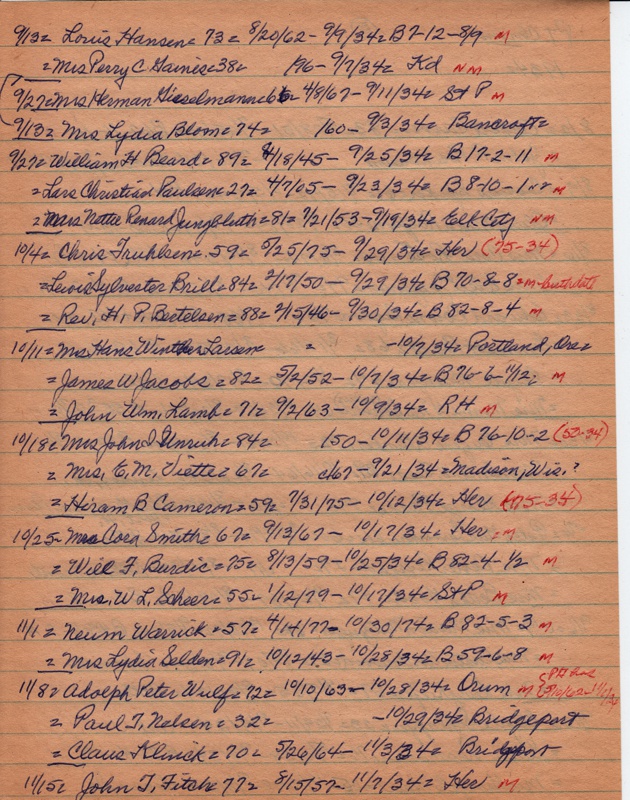 9/13= Louis Hansen= 73= 8/20/62- 9/9/34= B7-12-8/9 M
= Mrs Perry C Gaines=38= /96- 9/7/34= Kd NM
9/27=Mrs Herman Gieselmann=66= 4/8/67- 9/11/34= St P M
9/13= Mrs Lydia Blom= 74= /60- 9/3/34= Bancroft=
9/27= William H Beard= 89= 4/18/45- 9/25/34= B17-2-11 M
=Lars Christian Paulsen= 27= 4/7/05- 9/23/34= B8-10-1 M
=Mrs Nettie Renard Jungbluth=81= 7/21/53-9/19/34= Elk Coty NM
10/4= Chris Fruhlsen= 59= 5/25/75- 9/29/34= Her (75-34)
=Lewis Sylvester Brill=84= 2/17/50- 9/29/34= B 70-8-8=M-birthdate
= Rev. H. P. Bertelsen= 88= 2/15/46- 9/30/34= B 82-8-4 M
10/11= Mrs Hans Winther Larsen= = -10/7/34= Portland, Ore=
= James W Jacobs= 82= 5/2/52- 10/7/34= B76-6-11/12; M
= John Wm. Lamb= 71= 9/2/63- 10/9/34= RH M
10/18= Mrs John D Unruh= 84= /50-10/11/34= B 76-10-2 (50-34)
= Mrs. E. M. Viette= 67= c/67- 9/21/34 =Madison, Wis.?
= Hiram B Cameron=59= 7/31/75- 10/12/34= Her (75-35)
10/25= Mrs Cora Smith= 67= 9/13/67- 10/17/34= Her =M
= Will F. Burdic= 75= 8/13/59-10/25/34= B 82-4-1/2 M
= Mrs. W L. Scheer= 55= 1/12/79- 10/17/34= St P M
11/1= Neum Warrick=57= 4/14/77- 10/30/74= B 82-5-3 M
= Mrs Lydia Selden=91= 10/12/43- 10/28/34= B 59-6-8 M
11/8= Adolph Peter Wulf= 72= 10/10/63- 10/28/34= Orum M
= Paul T. Nelsen= 32= -10/29/34= Bridgeport
= Claus Klinck= 70= 5/26/64- 11/3/34= Bridgeport
11/15= John T. Fitch= 77= 8/15/57- 11/7/34= Her M